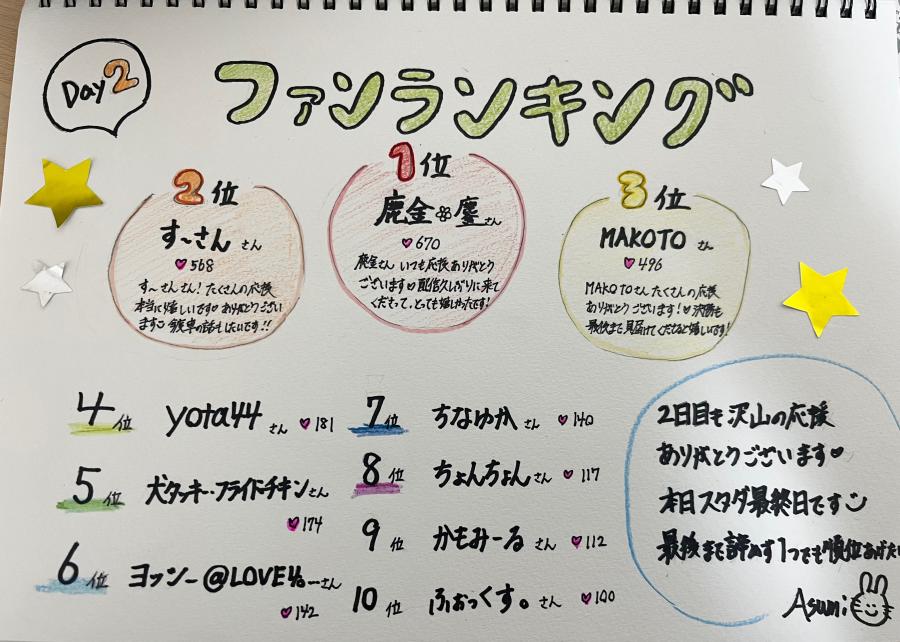 Day2
ファンランキング
1位
鹿金❀鏖さん
♥670
鹿金さん いつも応援ありがとう
ございます♡配信久しぶりに来て
くださって、とっても嬉しかったです!
2位
すーさん さん
♥568
すーさんさん!たくさんの応援
本当に嬉しいです♡ありがとうござい
ます 今度車の話もしたいです!!
3位
MAKOTO さん
♥496
MAKOTOさんたくさんの応援
ありがとうございます!♡決勝も
最後まで見届けてくださると嬉しいです!
4位 yota44 さん ♥181
5位 犬タッキーフライドチキンさん
♥174
6位 ヨッシー@LOVE さん
♥142
7位 ちなゆか さん ♥140
8位 ちょんちょんさん ♥117
9位 かもみーる さん ♥112
10位 ふぉっくす。さん ♥100
2日目も沢山の応援
ありがとうございます♥
本日スタダ最終日です
最後まで諦めず1つでも順位あげたい
Asumi